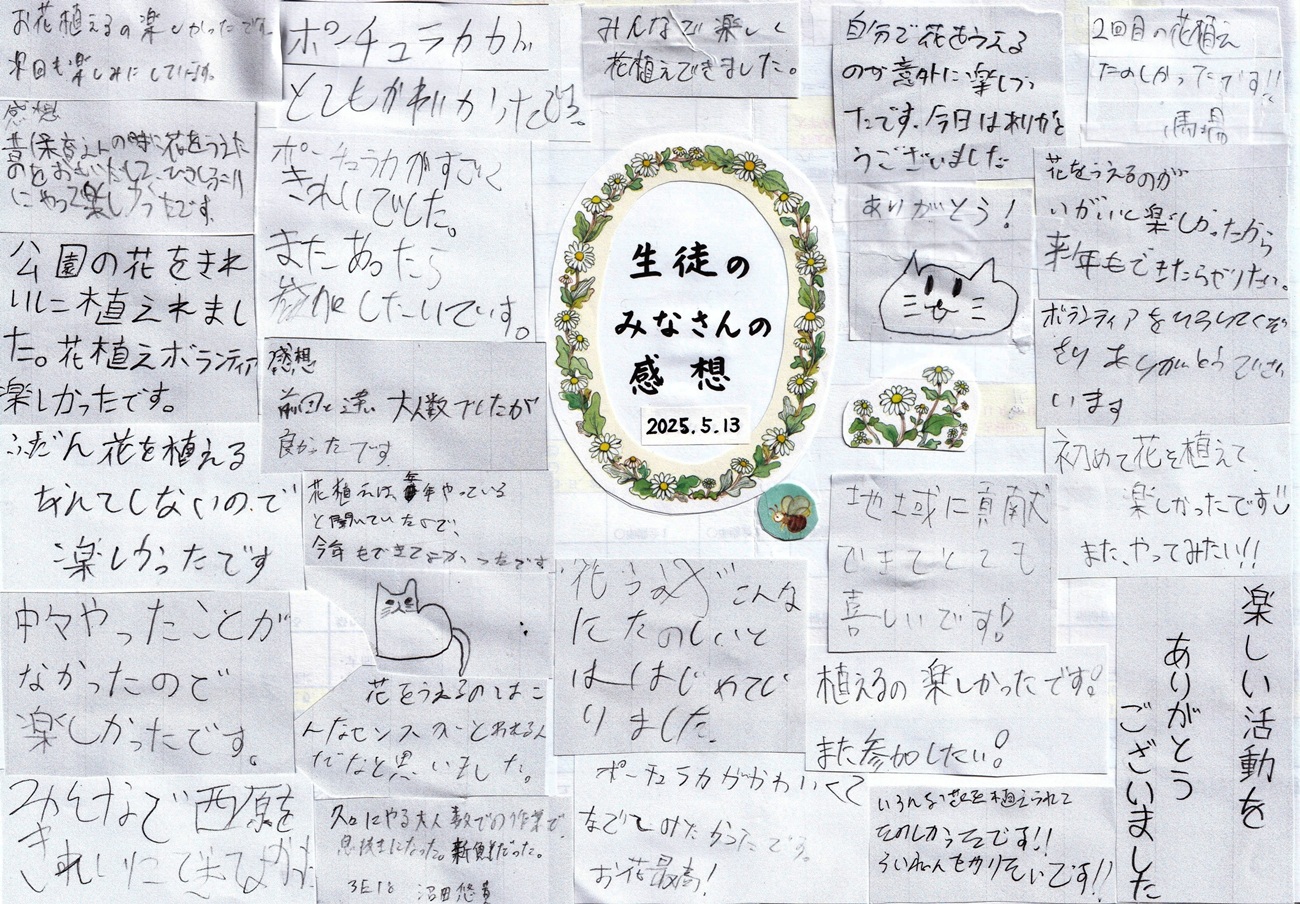 お花植えるの楽しかったです。
来回も楽しみにしています。
感想
昔保育えんの時に花をうえた
のをおもいだして、ひさしぶり
にやって楽しかったです。
公園の花をきれ
いに植えれまし
た。花植えボランティア
楽しかったです。
ふだん花を植える
なんてしないので
楽しかったです
中々やったことが
なかったので
楽しかったです。
みんなで西原を
きれいにできてよかった
ポーチュラカが
とてもかわいかったです。
ポーチュラカがすごく
きれいでした。
またあったら
参加したいです。
感想
前回と違い大人数でしたが
良かったです
花植えは、毎年やっている
と聞いていたので、
今年もできてよかったです
花をうえるのはこ
んなセンスの
だなと思いました。
久々にやる大人数での作業で、
息抜きになった。新鮮だった。
3E18 沼田悠貴
みんなで楽しく
花植えできました。
生徒の
みなさんの
感想
2025.5.13
花うめがこんな
にたのしいと
ははじめてし
りました。
ポーチュラカがかわいくて
なでてみたかったです。
お花最高!
自分で花をうえる
のが意外に楽しかっ
たです。今日はありがと
うございました
ありがとう!
地域に貢献
できてとても
喜しいです!
植えるの楽しかったです!
また参加したい!
いろんな花を植えられて
たのしかったです!!
らいねんもやりたいです!!
2回目の花植え
たのしかったです!!
馬場
花をうえるのが
いがいに楽しかったから
来年もできたらやりたい。
ボランティアを
ありがとうござ
います
初めて花を植えて、
楽しかったです
また、やってみたい!!
楽しい活動を
ありがとう
ございました